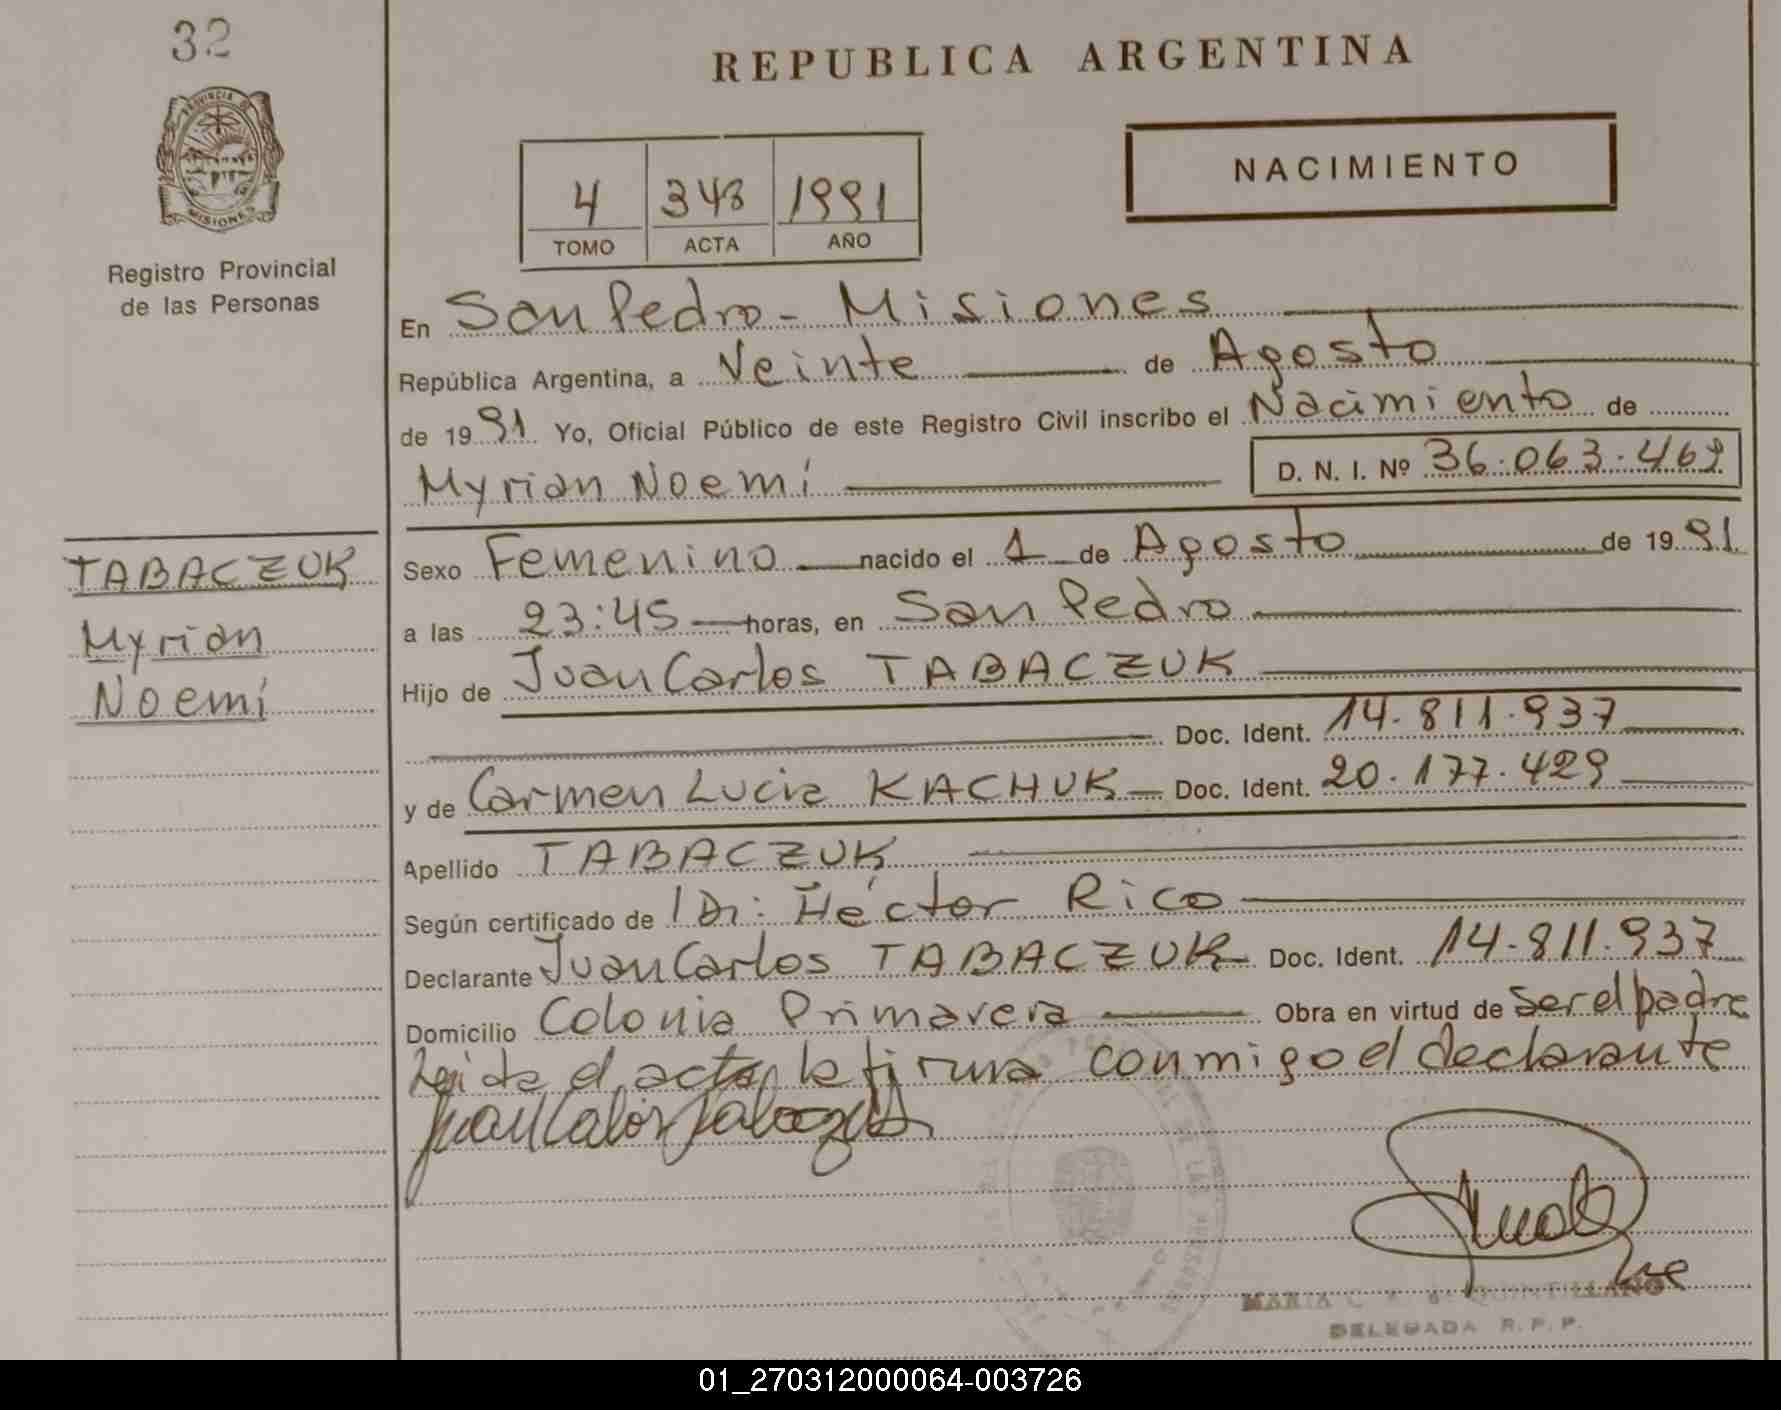 32
PROVINCIA DE
MISIONES
Registro Provincial
de las Personas
REPUBLICA ARGENTINA
NACIMIENTO
4 343 1991
TOMO ACTA AÑO
En San Pedro - Misiones
República Argentina, a Veinte de Agosto
de 1991 Yo, Oficial Público de este Registro Civil inscribo el Nacimiento de
Myrian Noemí D. N. I. Nº 36.063.462
TABACZUK
Myrian
Noemí
Sexo Femenino nacido el 1 de Agosto de 1991
a las 23:45 horas, en San Pedro
Hijo de Juan Carlos TABACZUK
Doc. Ident. 14.811.937
y de Carmen Lucia KACHUK Doc. Ident. 20.177.429
Apellido TABACZUK
Según certificado de Dr: Héctor Rico
Declarante Juan Carlos TABACZUK Doc. Ident. 14.811.937
Domicilio Colonia Primavera Obra en virtud de ser el padre
Leida el acta la firma conmigo el declarante
MARIA QUINTILLANO
DELEGADA R. P. P.
01_270312000064-003726